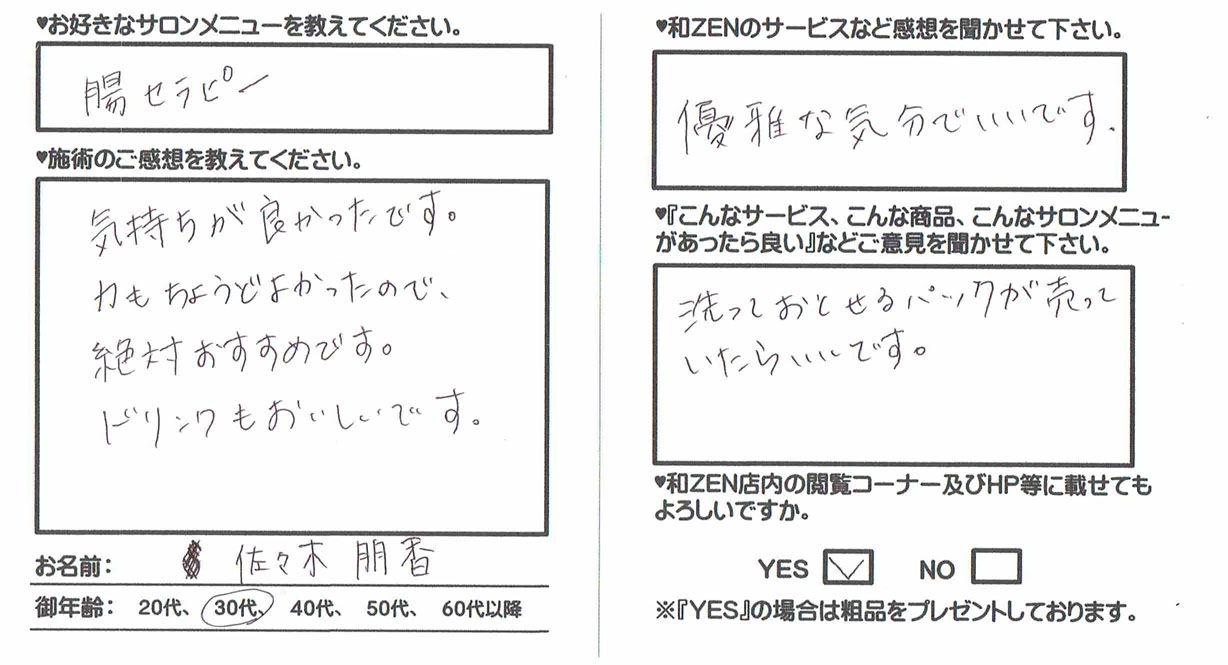 ♥お好きなサロンメニューを教えてください。
腸セラピー
♥施術のご感想を教えてください。
気持ちが良かったです。
力もちょうどよかったので、
絶対おすすめです。
ドリンクもおいしいです。
お名前： 佐々木 朋香
御年齢： 20代、 30代、 40代、 50代、 60代以降
♥和ZENのサービスなど感想を聞かせて下さい。
優雅な気分でいいです.
♥『こんなサービス、こんな商品、こんなサロンメニュー
があったら良い』などご意見を聞かせて下さい。
洗っておとせるパックが売って
いたらいいです。
♥和ZEN店内の閲覧コーナー及びHP等に載せても
よろしいですか。
YES NO
※『YES』の場合は粗品をプレゼントしております。